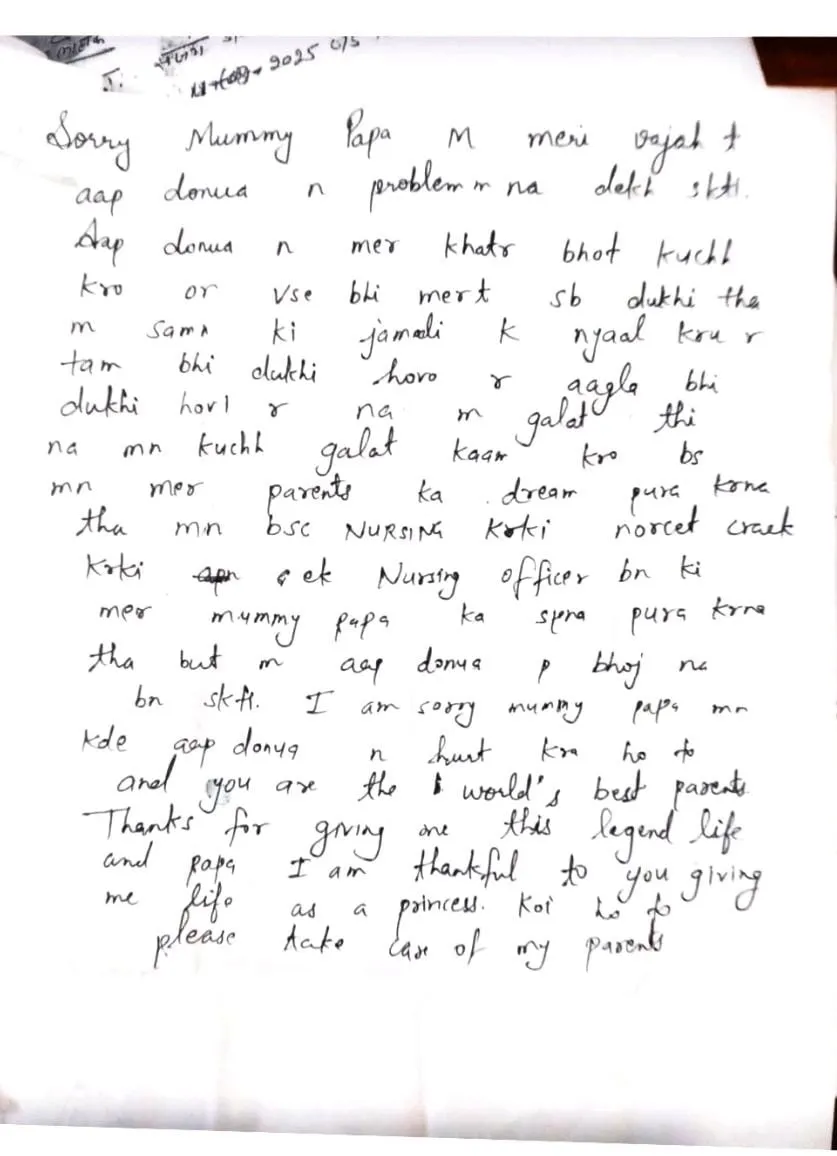 2025
Sorry Mummy Papa M meri vajah t
aap donua n problem m na dekh skti.
Aap donua n mer khatr bhot kuchh
kro or vse bhi mert sb dukhi tha
m samn ki jamali k nyaal kru r
tam bhi dukhi hovo r aagla bhi
dukhi hovl r na m galat thi
na mn kuchh galat kaam kro bs
mn mer parents ka dream pura krna
tha mn bsc NURSING krki norcet crack
krki ek Nursing officer bn ki
mer mummy papa ka spna pura krna
tha but m aap donya p bhoj na
bn skti. I am sorry mummy papa mn
kde aap donya n hurt kra ho to
and you are the world's best parents
Thanks for giving me this legend life
and papa I am thankful to you giving
me life as a princess. Koi ho to
please take care of my parents